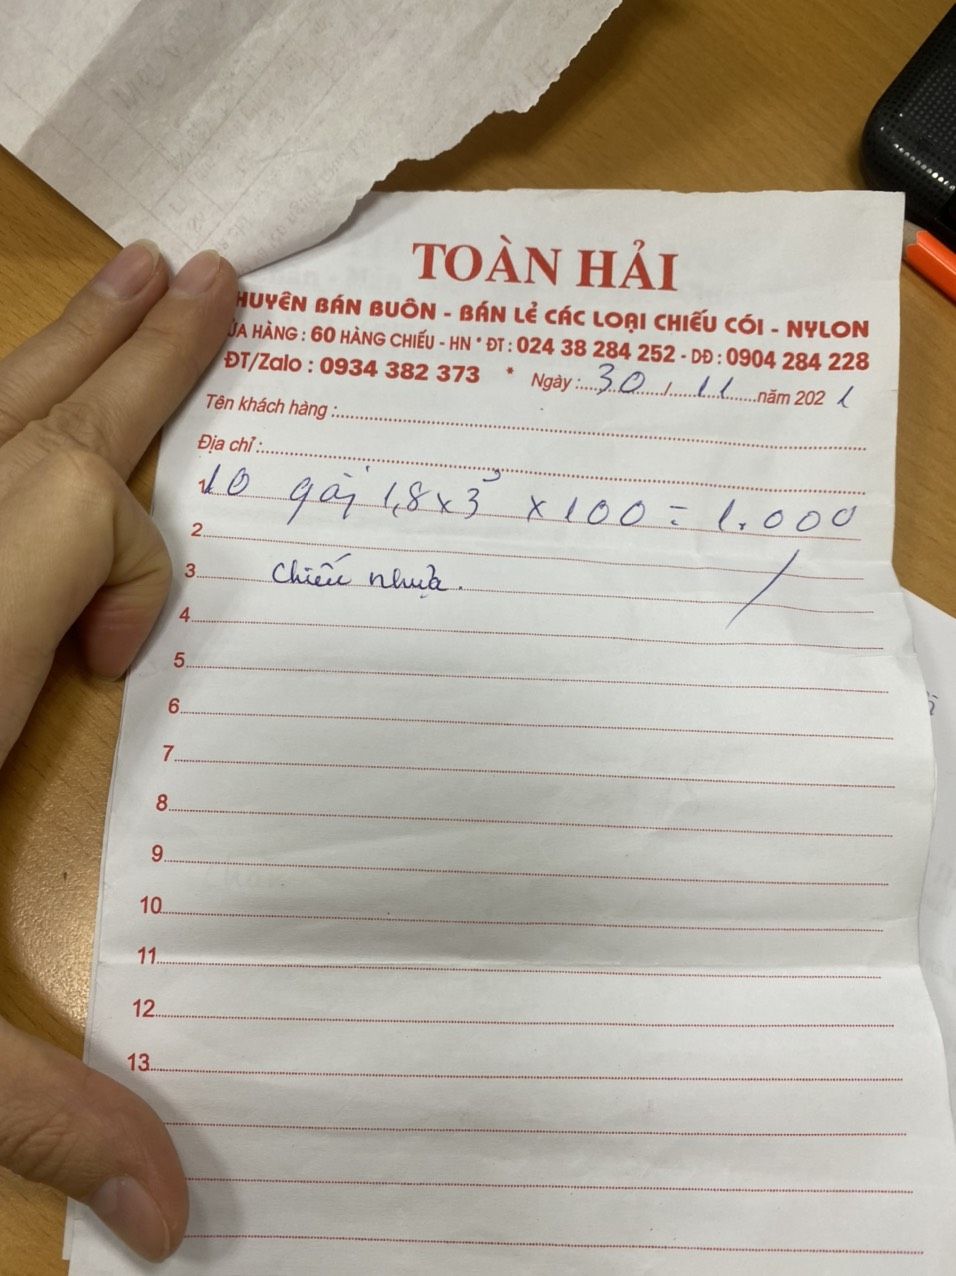 TOÀN HẢI
HUYÊN BÁN BUÔN - BÁN LẺ CÁC LOẠI CHIẾU CÓI - NYLON
ỬA HÀNG : 60 HÀNG CHIẾU - HN * ĐT : 024 38 284 252 - DĐ : 0904 284 228
ĐT/Zalo : 0934 382 373 * Ngày : 30 / 11 năm 2021
Tên khách hàng :
Địa chỉ :
1 10 1,8 x 3 x 100 = 1.000
2
3 chiếu nhựa.
4
5
6
7
8
9
10
11
12
13